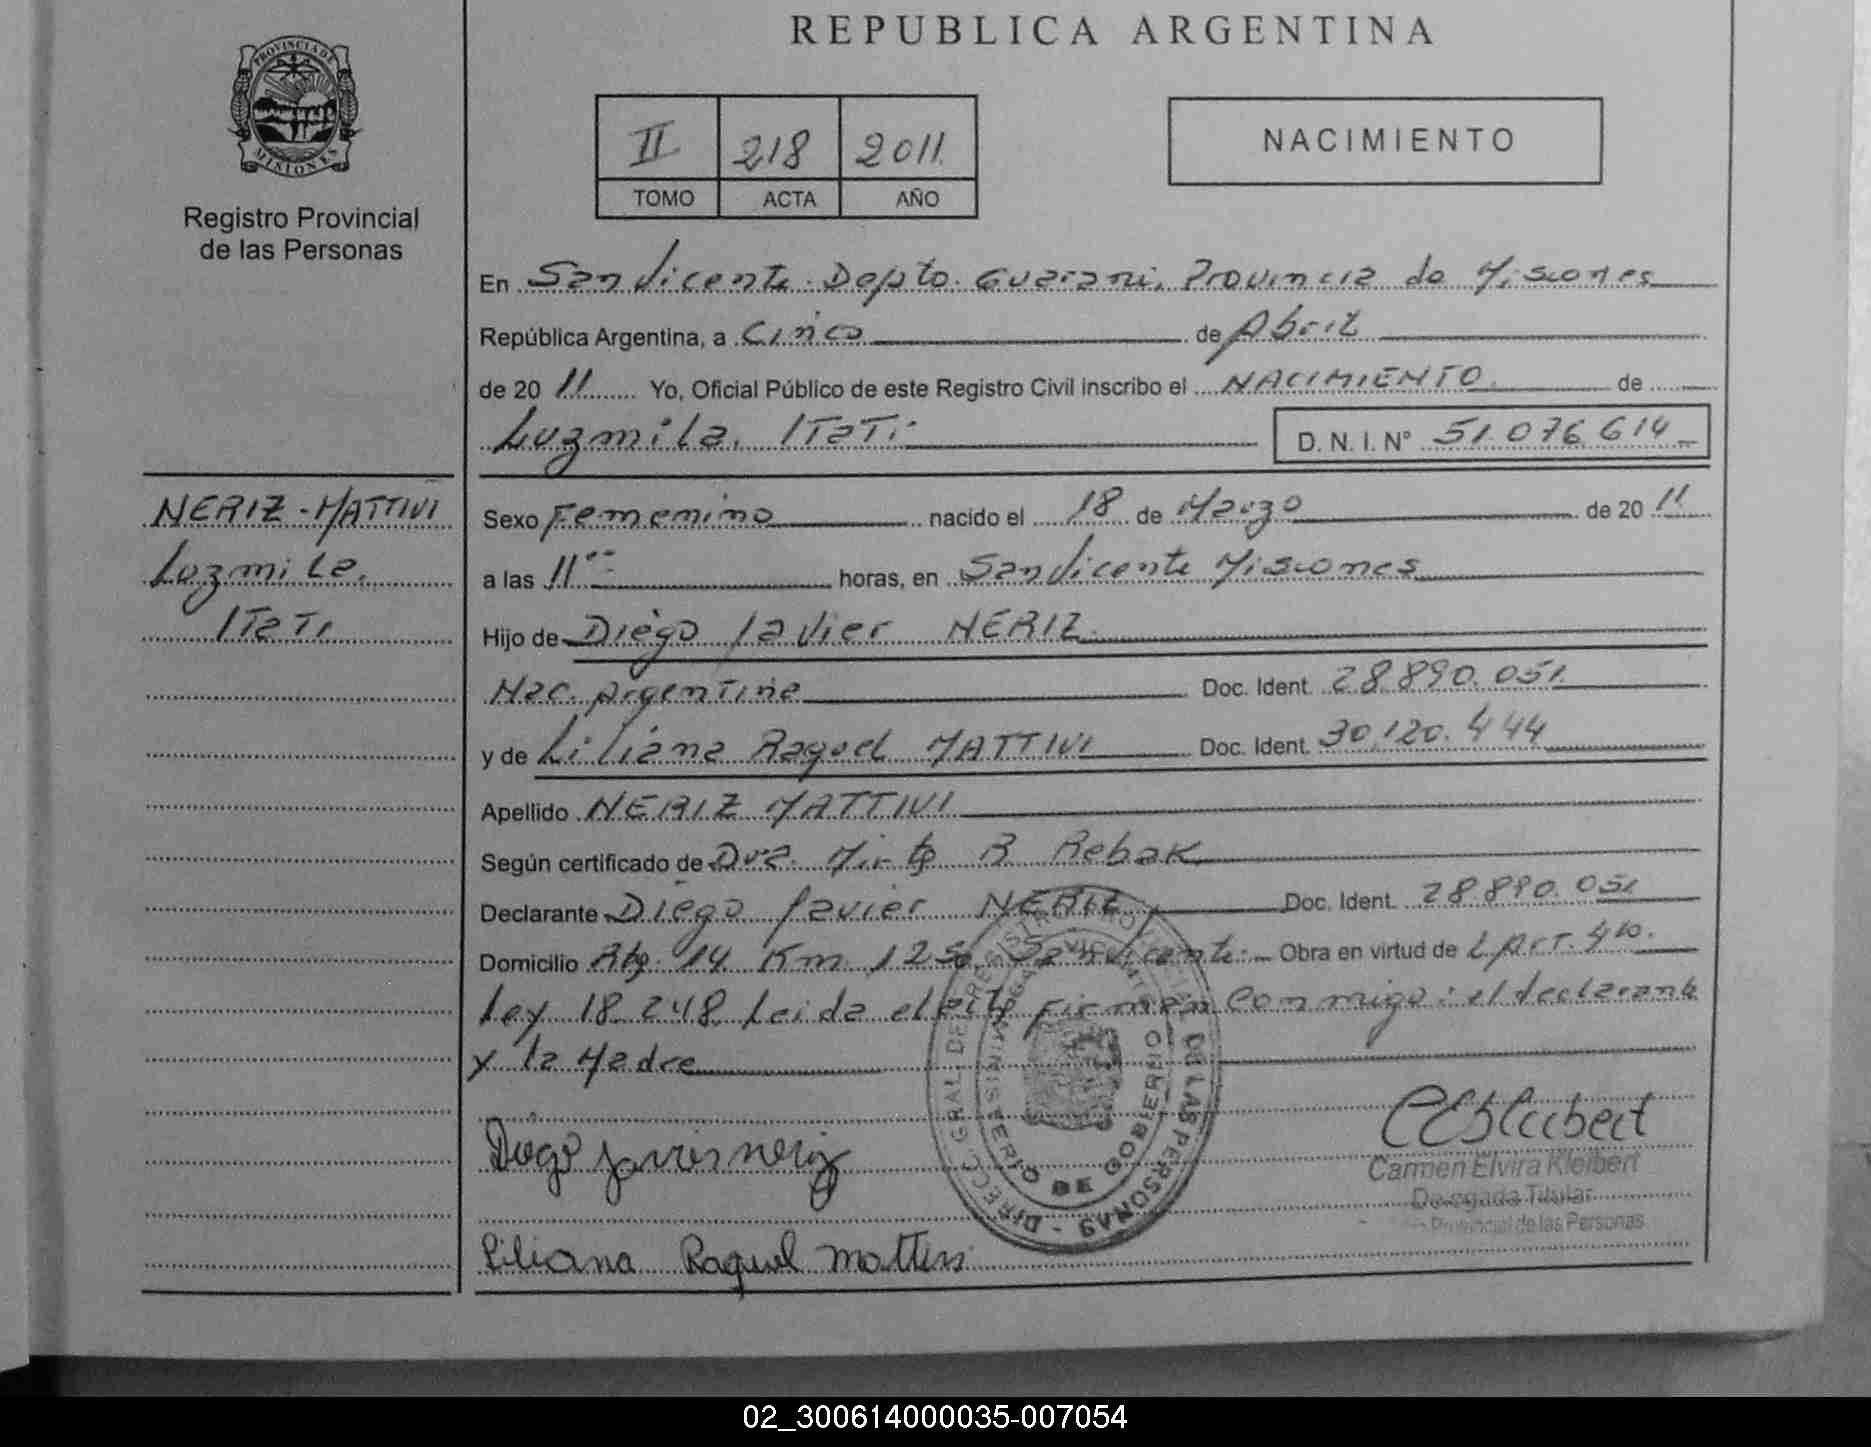 REPUBLICA ARGENTINA
PROVINCIA DE MISIONES
Registro Provincial
de las Personas
II 218 2011
TOMO ACTA AÑO
NACIMIENTO
En San Vicente Depto. Guarani, Provincia de Misiones
República Argentina, a Cinco de Abril
de 20 11 Yo, Oficial Público de este Registro Civil inscribo el NACIMIENTO de
Luzmila, ITaTi
D. N. I. N° 51.076.614
NERIZ-MATTIVI
Luzmila
ITaTi
Sexo Femenino nacido el 18 de Marzo de 20 11
a las 11 horas, en San Vicente Misiones
Hijo de Diego Javier NERIZ
Nac. Argentina Doc. Ident. 28.890.051
y de Liliana Raquel MATTIVI Doc. Ident. 30.120.444
Apellido NERIZ MATTIVI
Según certificado de Dra. Mirta R Rebak
Declarante Diego Javier NERIZ Doc. Ident. 28.890.051
Domicilio Rta. 14 Km 1250 San Vicente Obra en virtud de L Art. 4to.
Ley 18.248. Leida el acta firman conmigo: el declarante
y la Madre
DIRECC. GRAL. DE REGISTRO PROVINCIAL DE LAS PERSONAS
MINISTERIO DE GOBIERNO
Diego Javier neriz
Liliana Raquel Mattivi
Carmen Elvira Kleibert
Delegada Titular
Provincial de las Personas
02_300614000035-007054